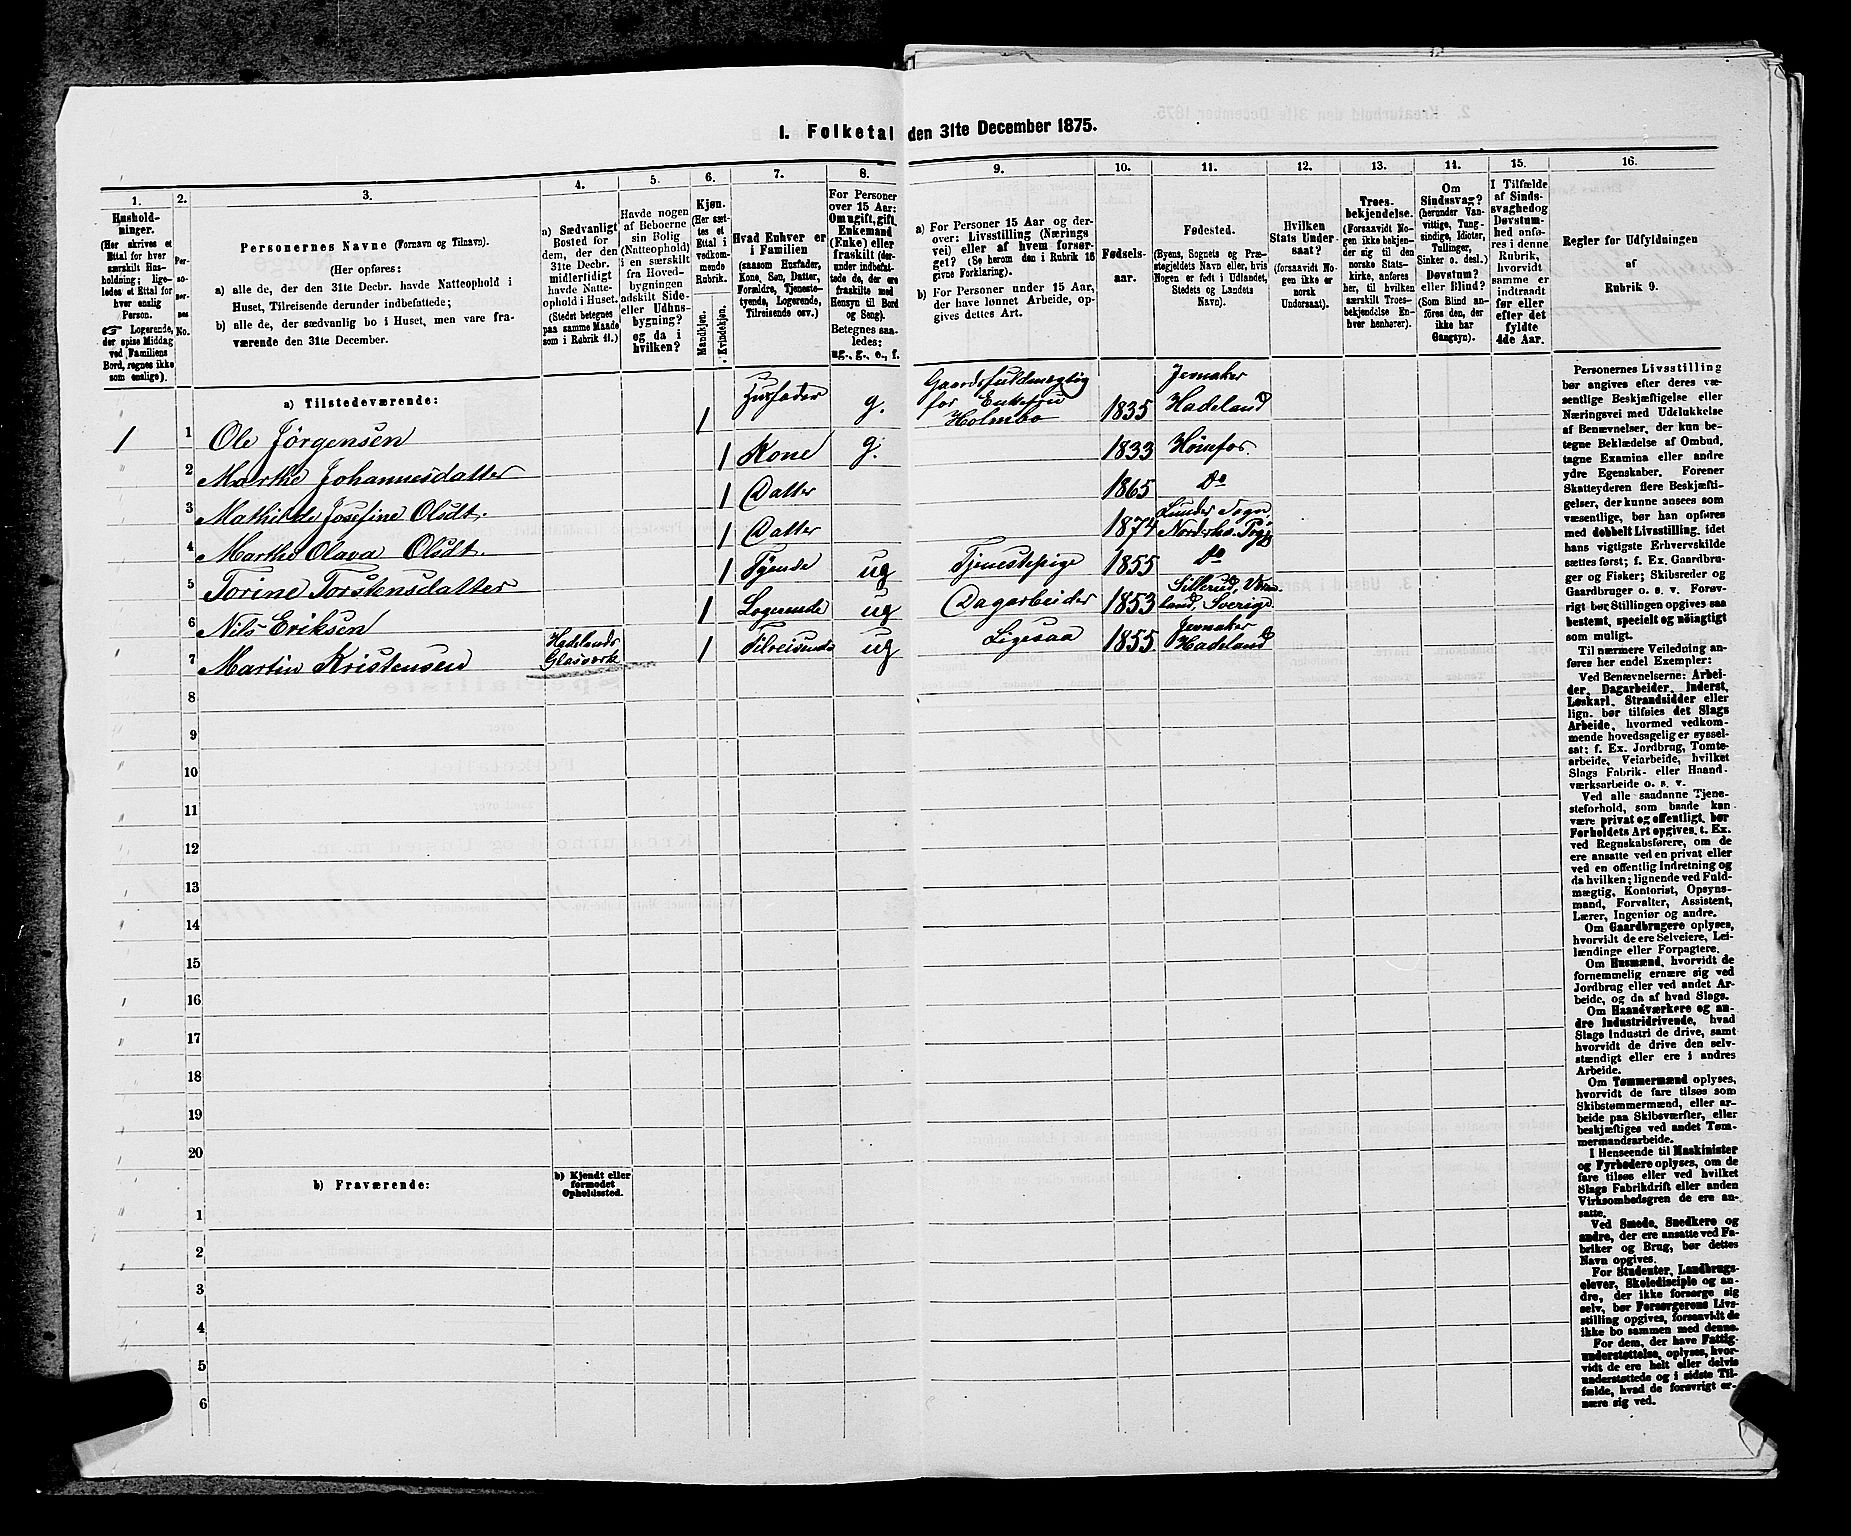 I. Folketal den 31te December 1875.
1.
Hushold-
ninger.
(Her skrives et
Ettal for hver
særskilt Hus-
holdning; lige-
ledes et Ettal for
hver enslig
Person.
☞ Logerende,
der spise Middag
ved Familiens
Bord, regnes ikke
som enslige).
2.
Per-
so-
ner-
nes
No.
3.
Personernes Navne (Fornavn og Tilnavn).
(Her opføres:
a) alle de, der den 31te Decbr. havde Natteophold i
Huset, Tilreisende derunder indbefattede;
b) alle de, der sædvanlig bo i Huset, men vare fra-
værende den 31te December.
4.
a) Sædvanligt
Bosted for
dem, der den
31te Decbr.
midlertidigt
havde Natte-
ophold i Huset.
(Stedet betegnes
paa samme Maade
som i Rubrik 11.)
5.
Havde nogen
af Beboerne
sin Bolig
(Natteophold)
i en særskilt
fra Hoved-
bygningen
adskilt Side-
eller Udhus-
bygning?
og da i
hvilken?
6.
Kjøn.
(Her sæt-
tes et
Ettal i
vedkom-
mende
Rubrik.
Mandkjøn.
Kvindekjøn.
7.
Hvad Enhver er
i Familien
(saasom Husfader,
Kone, Søn, Datter,
Forældre, Tjeneste-
tyende, Logerende,
Tilreisende osv.)
8.
For Personer
over 15 Aar:
Om ugift, gift,
Enkemand
(Enke) eller
fraskilt (der-
under indbefat-
tede de, der ere
fraskilte med
Hensyn til Bord
og Seng).
Betegnes saa-
ledes:
ug., g., e., f.
9.
a) For Personer 15 Aar og der-
over: Livsstilling (Nærings
vei) eller af hvem forsør-
get? (Se herom den i Rubrik 16
givne Forklaring).
b) For Personer under 15 Aar,
der have lønnet Arbeide, op-
gives dettes Art.
10.
Fødsels-
aar.
11.
Fødested.
(Byens, Sognets og Præ-
stegjeldets Navn eller, hvis
Nogen er født i Udlandet,
Stedets og Landets
Navn).
12.
Hvilken
Stats Under-
saat?
(forsaavidt No-
gen ikke er
norsk
Undersaat).
13.
Troes-
bekjendelse.
(Forsaavidt No-
gen ikke bekjen-
der sig til den
norske Stats-
kirke, anføres
her, til hvilken
særskilt Troes-
bekjendelse En-
hver henhører).
14.
Om
Sindssvag?
(herunder Van-
vittige, Tung-
sindige, Idioter,
Tullinger,
Sinker o. desl.)
Døvstum?
eller Blind?
(Som Blind an-
føres den, der
ikke har
Gangsyn).
15.
I Tilfælde
af Sinds-
svaghed og
Døvstum-
hed anfø-
res i denne
Rubrik,
hvorvidt
samme er
indtraadt
før eller
efter det
fyldte
4de Aar.
16.
Regler for Udfyldningen
af
Rubrik 9.
a) Tilstedeværende:
1 1 Ole Jörgensen 1 Husfader g. Gaardsfuldmægtig for Enkefru Holmbo 1835 Jevnaker Hadeland
2 Marthe Johannesdatter 1 Kone g. 1833 Hönefos.
3 Mathilde Josefine Olsdt. 1 Datter 1865 Do
4 Marthe Olava Olsdt. 1 Datter 1874 Lunder Sogn, Nordrho. Prgj
5 Torine Torstensdatter 1 Tyende ug Tjenestepige 1855 Do
6 Nils Eriksen 1 Logerende ug Dagarbeider 1853 Sillerud, Verm- land, Sverige
7 Martin Kristensen Hadelands Glasverk 1 Tilreisende ug Ligesaa 1855 Jevnaker Hadeland
8
9
10
11
12
13
14
15
16
17
18
19
20
b) Fraværende:
b) Kjendt eller
formodet
Opholdssted.
1
2
3
4
5
6
Personernes Livsstilling
bør angives efter deres væ-
sentlige Beskjæftigelse eller
Næringsvei med Udelukkelse
af Benævnelser, der kun be-
tegne Beklædelse af Ombud,
tagne Examina eller andre
ydre Egenskaber. Forener
Skatteyderen flere Beskjæfti-
gelser, der kunne ansees som
væsentlige, bør han opføres
med dobbelt Livsstilling, idet
hans vigtigste Erhvervskilde
sættes først; f. Ex. Gaardbru-
ger og Fisker; Skibsreder og
Gaardbruger o. s. v. Forøv-
rigt bør Stillingen opgives saa
bestemt, specielt og nöiagtigt
som muligt.
Til nærmere Veiledning an-
føres her endel Exempler:
Ved Benævnelserne: Arbei-
der, Dagarbeider, Inderst,
Løskarl, Strandsidder eller
lign. bør tilføies det Slags
Arbeide, hvormed vedkom-
mende hovedsagelig er syssel-
sat; f. Ex. Jordbrug, Tomte-
arbeide, Veiarbeide, hvilket
Slags Fabrik- eller Haand-
værksarbeide o. s. v.
Ved alle saadanne Tjene-
steforhold, som baade kan
være privat og offentligt, bør
Forholdets Art opgives, t. Ex.
ved Regnskabsførere, om de
ere ansatte ved en privat eller
ved en offentlig Indretning og
da hvilken; lignende ved Fuld-
mægtig, Kontorist, Opsyns-
mand, Forvalter, Assistent,
Lærer, Ingeniør og andre.
Om Gaardbrugere oplyses,
hvorvidt de ere Selveiere, Lei-
lændinge eller Forpagtere.
Om Husmænd, hvorvidt de
fornemmelig ernære sig ved
Jordbrug eller ved andet Ar-
beide, og da af hvad Slags.
Om Haandværkere og an-
dre Industridrivende, hvad
Slags Industri de drive, samt
hvorvidt de drive den selv-
stændigt eller ere i andres
Arbeide.
Om Tømmermænd oplyses,
hvorvidt de fare tilsøs som
Skibstømmermænd, eller ar-
beide paa Skibsværfter, eller
beskjæftiges ved andet Tøm-
mermandsarbeide.
I Henseende til Maskinister
og Fyrbødere oplyses, om de
fare tilsøs eller ved hvilket
Slags Fabrikdrift eller anden
Virksomhedsgren de ere an-
satte.
Ved Smede, Snedkere og
andre, der ere ansatte ved Fa-
briker og Brug, bør dettes
Navn opgives.
For Studenter, Landbrugs-
elever, Skoledisciple og an-
dre, der ikke forsørge sig
selv, bør Forsørgerens Livs-
stilling opgives, forsaavidt de
ikke bo sammen med denne.
For dem, der have Fattig-
understøttelse, oplyses, hvor-
vidt de ere helt eller delvis
understøttede og i sidste Til-
fælde, hvad de forøvrigt er-
nære sig ved.